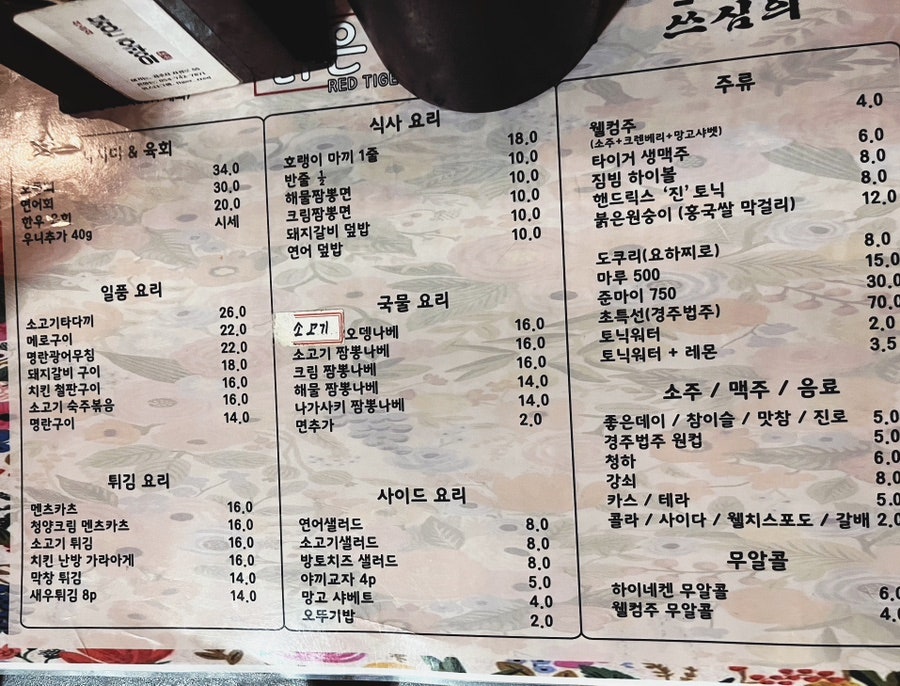 쓰심히
RED TIGE
& 육회
34.0
30.0
연어회 20.0
한우 육회 시세
우니추가 40g
일품 요리
소고기타다끼 26.0
메로구이 22.0
명란광어무침 22.0
돼지갈비 구이 18.0
치킨 철판구이 16.0
소고기 숙주볶음 16.0
명란구이 14.0
튀김 요리
멘츠카츠 16.0
청양크림 멘츠카츠 16.0
소고기 튀김 16.0
치킨 난방 가라아게 16.0
막창 튀김 14.0
새우튀김 8p 14.0
식사 요리
호랭이 마끼 1줄 18.0
반줄 ½ 10.0
해물짬뽕면 10.0
크림짬뽕면 10.0
돼지갈비 덮밥 10.0
연어 덮밥 10.0
국물 요리
소고기 오뎅나베 16.0
소고기 짬뽕나베 16.0
크림 짬뽕나베 16.0
해물 짬뽕나베 14.0
나가사키 짬뽕나베 14.0
면추가 2.0
사이드 요리
연어샐러드 8.0
소고기샐러드 8.0
방토치즈 샐러드 8.0
야끼교자 4p 5.0
망고 샤베트 4.0
오뚜기밥 2.0
주류
웰컴주 4.0
(소주+크렌베리+망고샤벳)
타이거 생맥주 6.0
짐빔 하이볼 8.0
핸드릭스 ‘진’ 토닉 8.0
붉은원숭이 (홍국쌀 막걸리) 12.0
도쿠리(요하찌로) 8.0
마루 500 15.0
준마이 750 30.0
초특선(경주법주) 70.0
토닉워터 2.0
토닉워터 + 레몬 3.5
소주 / 맥주 / 음료
좋은데이 / 참이슬 / 맛참 / 진로 5.0
경주법주 원컵 5.0
청하 6.0
강쇠 8.0
카스 / 테라 5.0
콜라 / 사이다 / 웰치스포도 / 갈배 2.0
무알콜
하이네켄 무알콜 6.0
웰컴주 무알콜 4.0